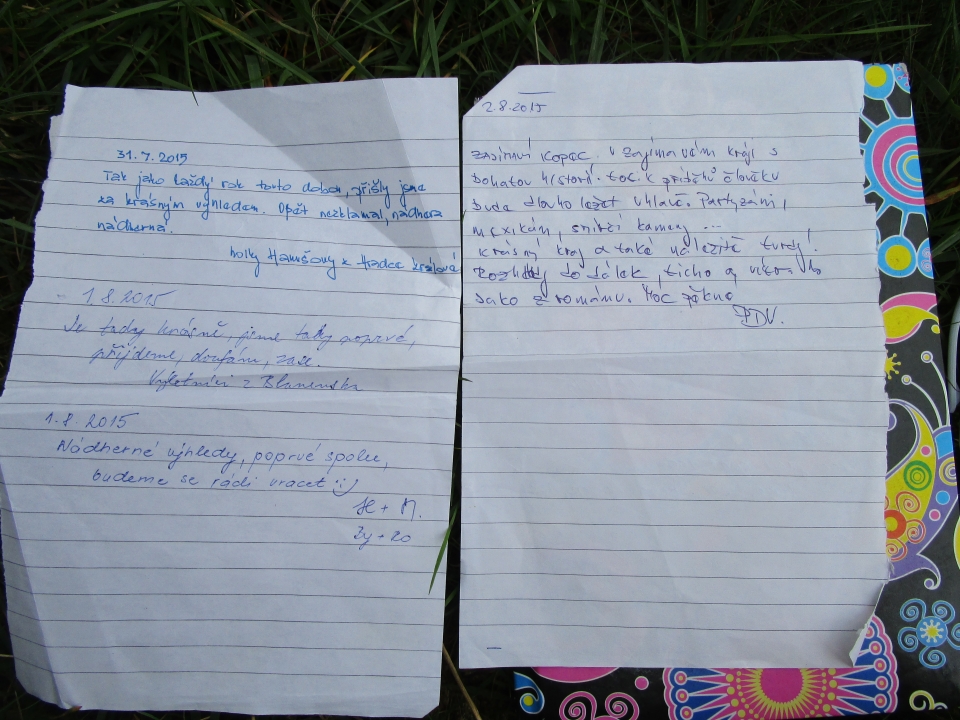 31.7.2015
Tak jako každý rok touto dobou, přišly jsme
za krásným výhledem. Opět nezklamal, nádhera
nádherná.
holky z Hradce Králové
1.8.2015
Je tady krásně, jsme tady poprvé,
přijdeme, doufám, zase.
Výletníci z Blanenska
1.8.2015
Nádherné výhledy, poprvé spolu,
budeme se rádi vracet :)
H + M.
2.8.2015
kopec. V zajímavém kráji s
bohatou k příběhů člověku
bude dlouho ležet v hlavě. Partyzáni,
mexikán, kameny ...
krásný kraj a také náležitě tvrdý!
do dálek, ticho a
Jako z románu. Moc pěkné